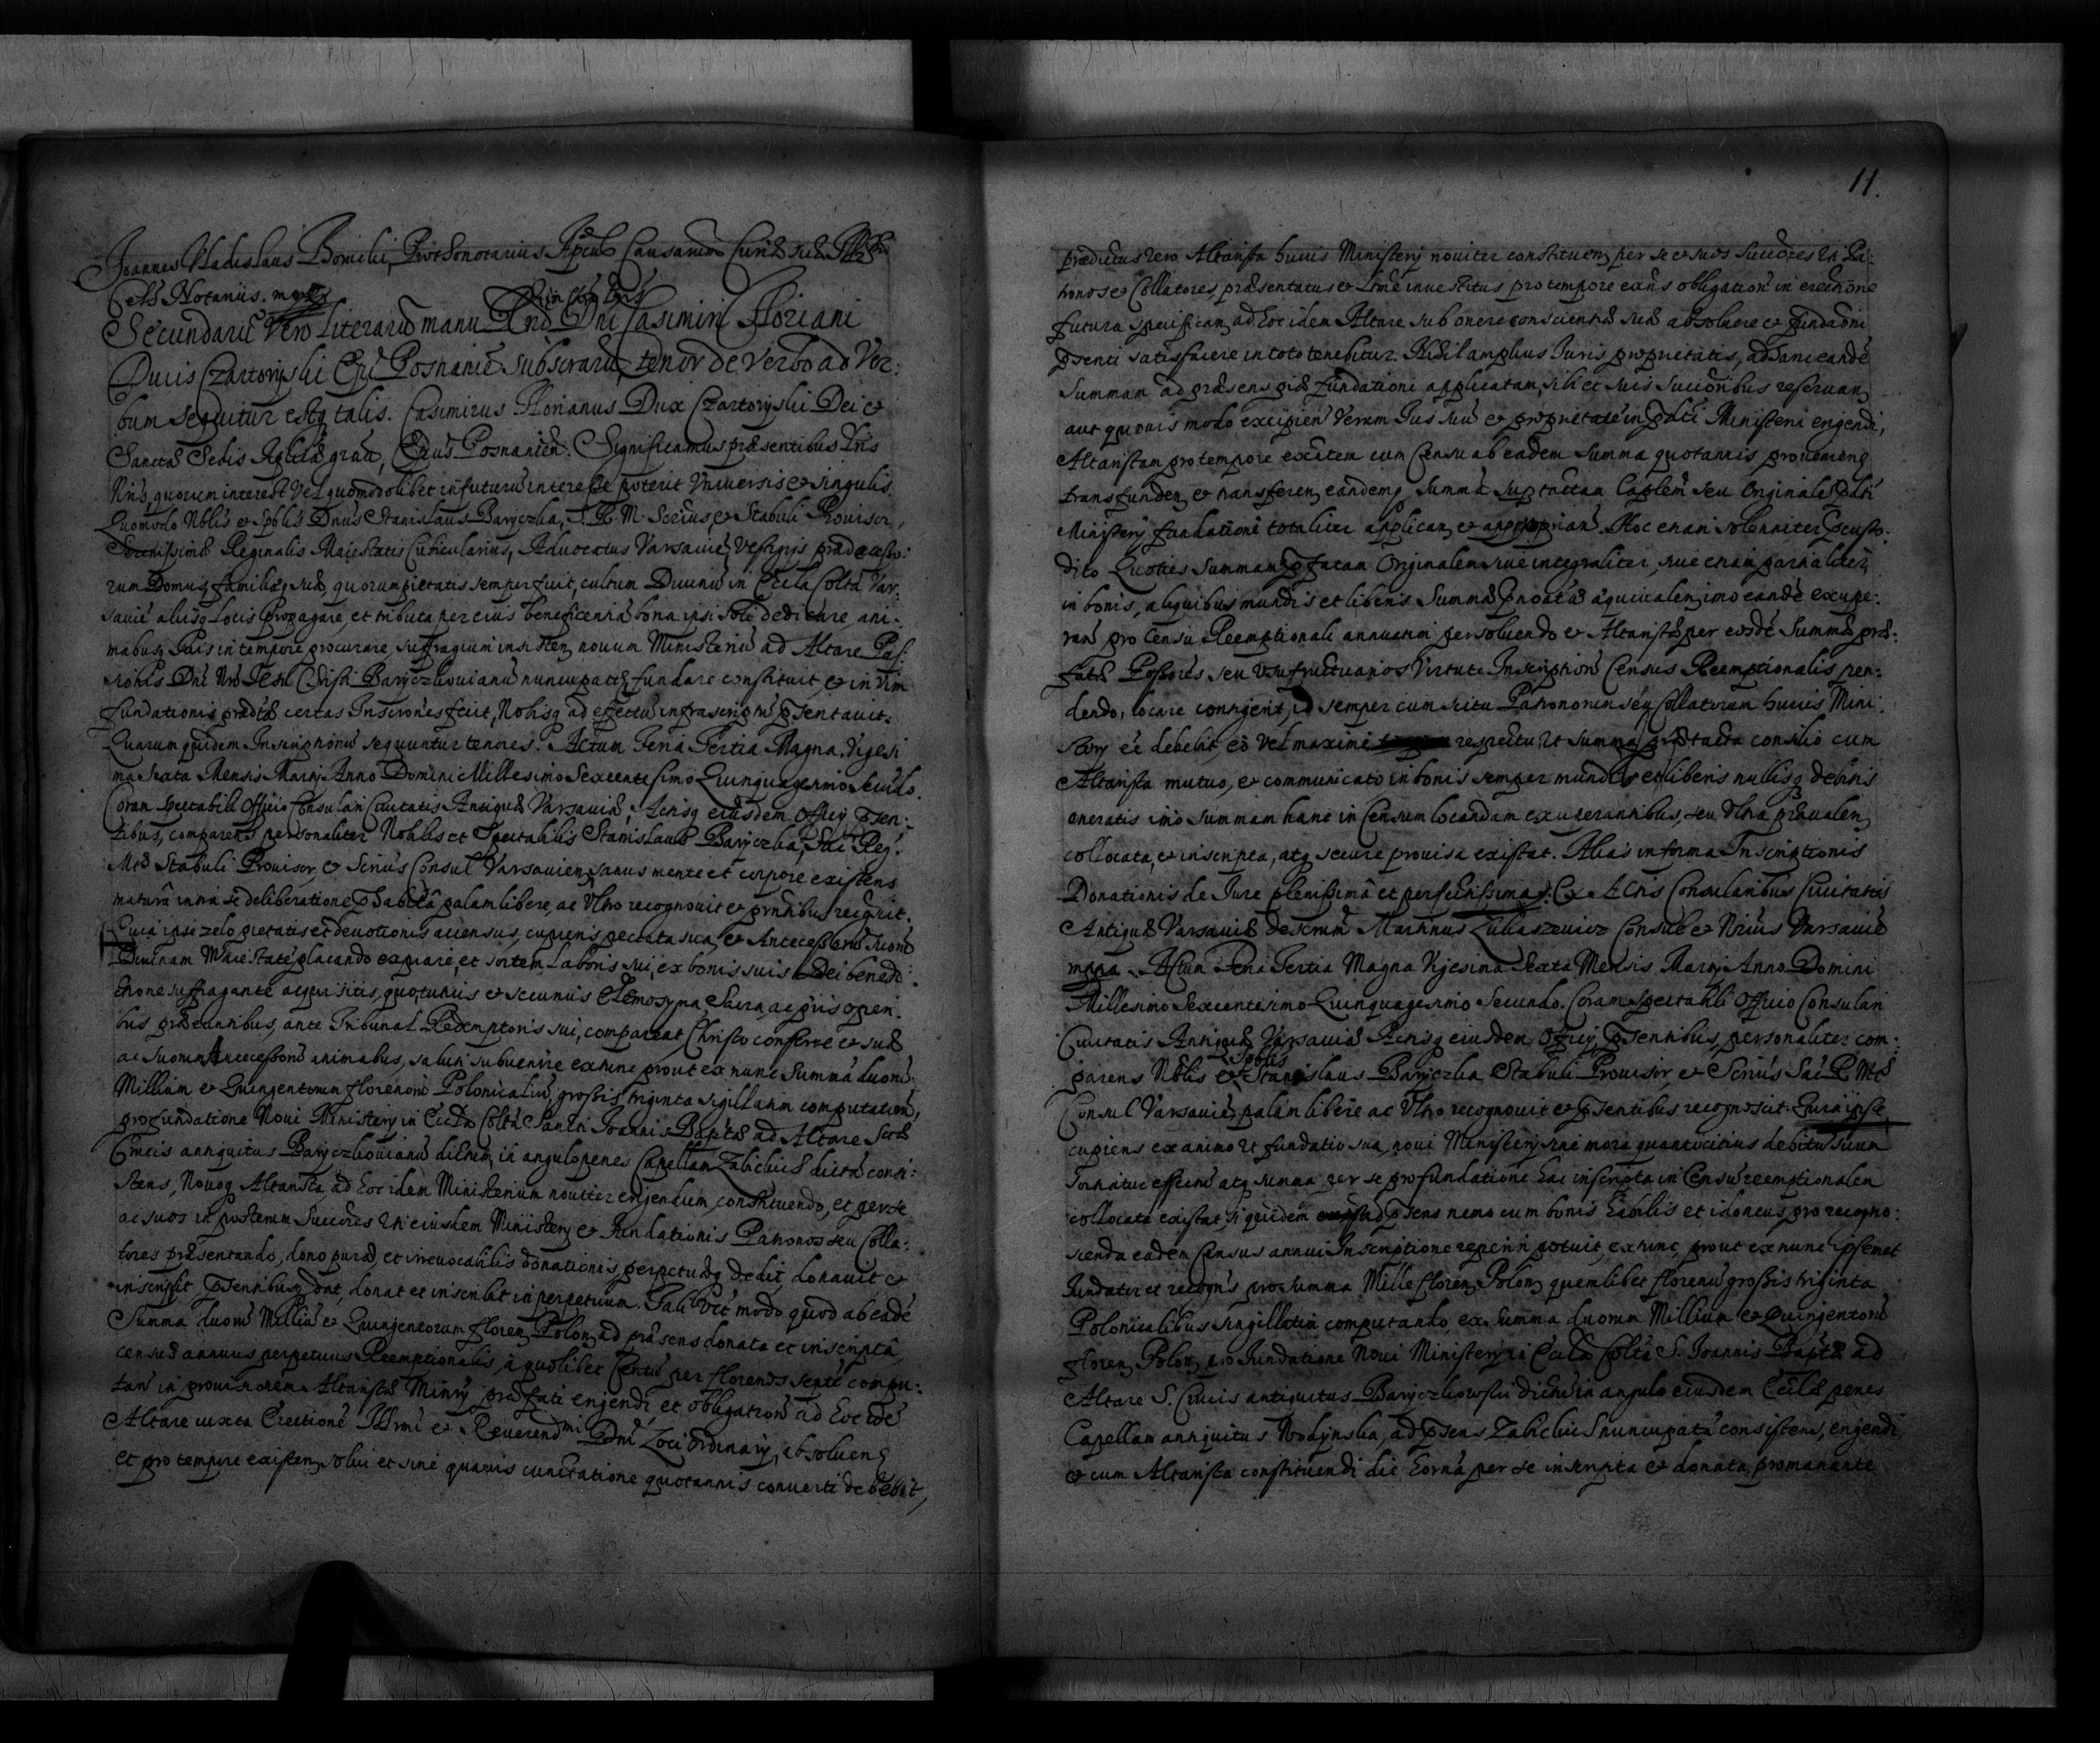 Joannes Vladislaus Bonielii, Prothonotarius Aplcus Causarum Curiæ suæ
Cels Notarius. mppa
Secundarũ Vero Literarũ manu Dni Casimiri Floriani
Ducis Czartoryski Epi Posnanien subscrarũ, tenor de verbo ad Ver:
bum sequitur estq talis. Casimirus Florianus Dux Czartoryski Dei et
Sanctæ Sedis Aplicæ gratia, Eppus Posnanien. Significamus præsentibus Lris
Nris, quorum interest Vel quomodolibet in futurũ interesse poterit Vniversis et singulis
Quomodo Nblis et Spblis Dnus Stanislaus Baryczka, S. R. M. Scribus et Stabuli Provisor,
Serenissimæ Reginalis Maiestatis Cubicularius, Advocatus Varsavien, Vestigijs prædecesso:
rum Domus, familiæq suæ, quorum pietatis semper fuit, cultum Divinũ in Eccla Colta Var:
savien alijsq Locis propagare, et tributa per eius beneficentiã bona ipsi soli dedicare, ani:
mabusq Pijs in tempore procurare suffragium insisten, novum Ministeriũ ad Altare Pas:
sionis Dni Nri Jesu Christi Baryczkovianũ nuncupatũ, fundare constituit, et in vim
fundationis prædictæ certas Inscriones fecit, Nobisq ad effectũ infrascriptũ præsentavit.
Quarum quidem Inscriptionũ sequuntur tenores. Actum Feria Tertia Magna, Vigesi
ma sexta Mensis Martij Anno Domini Millesimo Sexcentesimo Quinquagesimo Secũdo.
Coram Spectabili Officio Consulari Civitatis Antiquæ Varsaviæ, Actisq eiusdem Officij præsen:
tibus, comparens personaliter Nobilis et Spectabilis Stanislaus Baryczka, Sac Reg:
Mtis Stabuli Provisor, et Scriũs Consul Varsavien, sanus mente et corpore existens
maturâ intra se deliberatione præhabitâ palam libere, ac Vltro recognovit et præntibus recogscit.
Quia ipse zelo pietatis et devotionis accensus, cupiens peccata sua, et Antecessorũ Suorũ
Divinam Maiestatẽ placando expiare, et sortem Laboris sui, ex bonis suis Dei benedi:
ctione suffragante acquisitis, quo tutius et securius Elemosyna, Sacra, ac pijs operi:
bus præeuntibus, ante Tribunal Redemptoris sui, compareat Christo conferre et suæ
ac suorum Antecessorũ animabus, saluti subvenire ex tunc prout ex nunc Summã duorũ
Millium et Quingentorum florenorũ Polonicaliũ, grossis triginta sigillatim computatorũ,
pro fundatione Novi Ministerij in Eccla Colta Sancti Joannis Baptæ ad Altare Stæ
Crucis antiquitus Baryczkovianũ dictũ, in angulo penes Capellam Zalicluiæ dictã consi:
stens, Novoq Altarista ad hoc idem Ministerium noviter erigendum, constituendo, et per se
ac suos in posterum Succres Vti eiusdem Ministerij et Fundationis Patronos seu Colla:
tores præsentando, dono puræ, et irrevocabilis donationis, perpetuæq dedit donavit et
inscripsit, præsentibusq dat, donat et inscribit in perpetuum. Tali Vti modo quod ab eadẽ
Summa duorũ Milliũ et Quingentorum floren Polon, ad præsens donata et inscriptâ,
census annuus perpetuus Reemptionalis, à quolibet Centũ per florenos septẽ compu:
tan in provisionem Altaristæ Minrij præfati erigendi et obligationũ ad hoc idẽ
Altare iuxta Erectionẽ Illrmi et Reverendmi Dni Loci Ordinarij, absolven
et pro tempore existen, solvi et sine quavis cunctatione quotannis converti debebit,
11.
prædictus vero Altarista huius Ministerij noviter constituen, per se et suos Succres Vti Pa:
tronos et Collatores, præsentatus et Ltimé investitus pro tempore exñs obligationũ in erectione
futura specifican, ad hoc idem Altare sub onere conscientiæ suæ absolvere et fundaoni
præsenti satisfacere in toto tenebitur. Nihil amplius Juris proprietatis, ad hanc eandẽ
Summam ad præsens piæ fundationi applicatam, sibi et suis succoribus reservan
aut quovis modo excipien Verum Jus suũ et proprietatẽ in præfati Ministerii erigendi,
Altaristam pro tempore exñtem cum Censu ab eadem Summa quotannis provenien
transfunden, et transferen, eandemq Summã supratactam Caplem seu Originalẽ præfati
Ministerij fundationi totaliter applican, et approprian. Hoc etiam solenniter præcusto:
dito. Quoties Summam præfatam Originalem sive integraliter, sive etiam partialiter,
in bonis, aliquibus mundis et liberis Summã prænotatã æquivalen, imo eandẽ exupe:
ran, pro Censu Reemptionali annuatim persolvendo et Altaristæ per eosdẽ Summæ præ:
fatæ Possores, seu Vsufructuarios Virtute Inscriptionũ Census Reemptionalis pen:
dendo, locare contigerit, id semper cum scitu Patronorum seu Collatorum huius Mini:
sterij eẽ debebit, eo Vel maxime respectu, Vt Summa prætacta consilio cum
Altarista mutuo, et communicato in bonis semper mundis et liberis nullisq debitis
oneratis imo summam hanc in Censum locandam exuperantibus, seu Vltra prævalen
collocata, et inscripta, atq secure provisa existat. Alias in forma Inscriptionis
Donationis de Jure plenissimâ et perfectissima. Ex Actis Consularibus Civitatis
Antiquæ Varsaviæ descrptũ Martinus Lukaszewicz Consul et Nrius Varsavien
mppa. Actum Feria Tertia Magna Vigesima Sexta Mensis Martij Anno Domini
Millesimo Sexcentesimo Quinquagesimo Secundo. Coram Spectabili Officio Consulari
Civitatis Antiquæ Varsaviæ Actisq eiusdem Officij præsentibus, personaliter com:
parens Nblis et Spblis Stanislaus Baryczka Stabuli Provisor, et Scriũs Sac R. Mtis
Consul Varsavien, palam libere ac Vltro recognovit et præsentibus recognoscit. Quia ipse
cupiens ex animo Vt fundatio sua, novi Ministerij sine mora quantocitius debitũ suum
sortiatur effectũ atq summa per se pro fundatione hac inscripta in Censũ reemptionalem
collocata existat, siquidem ad præsens nemo cum bonis habilis et idoneus, pro recogno:
scenda eadem Census annui Inscriptione reperiri potuit, ex tunc, prout ex nunc ipsemet
Fundator et recogns pro summa Mille floren Polon quemlibet florenũ grossis triginta
Polonicalibus singillatim computando, ex Summa duorum Millium et Quingentorũ
floren Polon, pro Fundatione Novi Ministerij in Eccla Colta S. Joannis Baptæ ad
Altare S. Crucis antiquitus Baryczkowski dictũ in angulo eiusdem Ecclæ penes
Capellam antiquitus Wodynska, ad præsens Zalicluis nuncupatã consistens, erigendi,
et cum Altarista constituendi die hornâ per se inscripta et donata, promanante